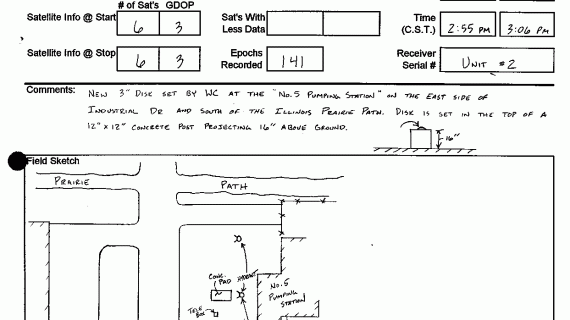 # of Sat's GDOP
Satellite Info @ Start 6 3 Sat's With Less Data Time (C.S.T.) 2:55 PM 3:06 PM
Satellite Info @ Stop 6 3 Epochs Recorded 141 Receiver Serial # UNIT #2
Comments: NEW 3" DISK SET BY WC AT THE "NO.5 PUMPING STATION" ON THE EAST SIDE OF
INDUSTRIAL DR AND SOUTH OF THE ILLINOIS PRAIRIE PATH. DISK IS SET IN THE TOP OF A
12" x 12" CONCRETE POST PROJECTING 16" ABOVE GROUND.
16"
Field Sketch
PRAIRIE PATH
CONC. PAD HYDRANT
NO.5 PUMPING STATION
TELE BOX